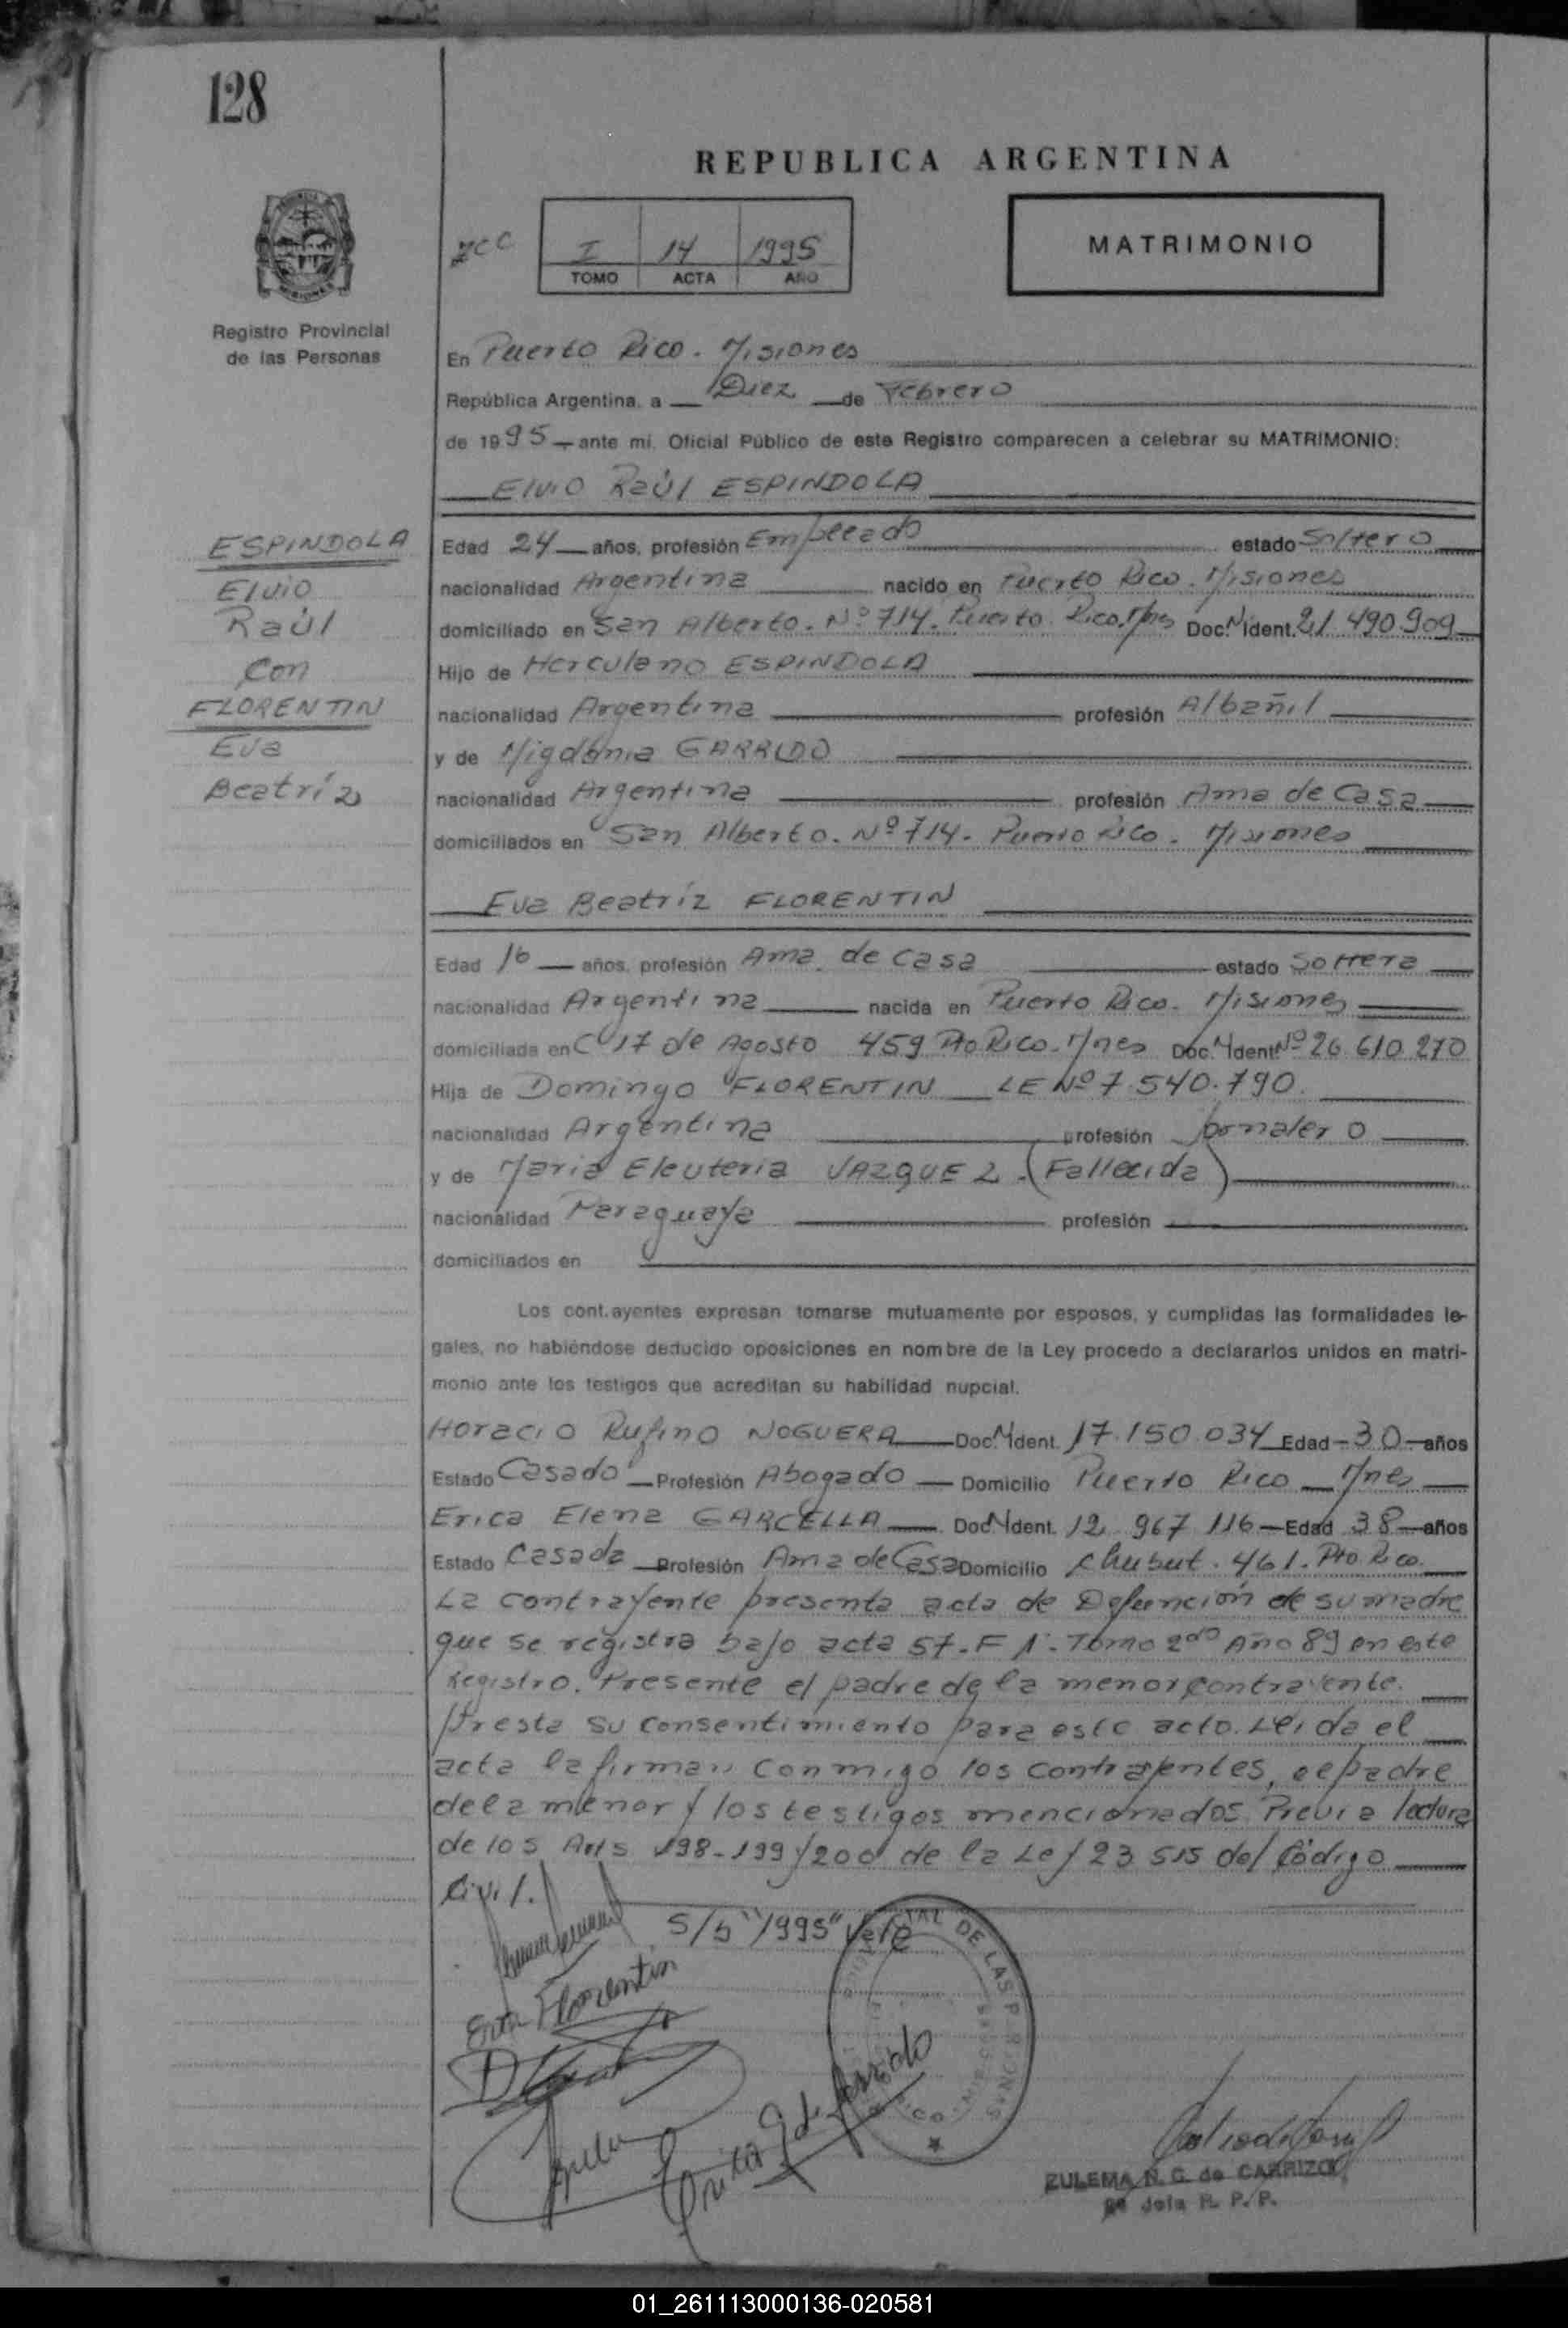 128
REPUBLICA ARGENTINA
MATRIMONIO
I 14 1995
TOMO ACTA AÑO
Registro Provincial
de las Personas
En Puerto Rico. Misiones
República Argentina, a Diez de Febrero
de 1995 ante mí, Oficial Público de este Registro comparecen a celebrar su MATRIMONIO:
Elvio Raúl ESPINDOLA
ESPINDOLA
Elvio
Raúl
Con
FLORENTIN
Eva
Beatríz
Edad 24 años, profesión Empleado estado Soltero
nacionalidad Argentina nacido en Puerto Rico. Misiones
domiciliado en San Alberto. Nº 714. Puerto Rico. Mnes Doc. N Ident. 21.490.909
Hijo de Herculano ESPINDOLA
nacionalidad Argentina profesión Albañil
y de Migdonia GARRIDO
nacionalidad Argentina profesión Ama de Casa
domiciliados en San Alberto. Nº 714. Puerto Rico. Misiones
Eva Beatríz FLORENTIN
Edad 16 años, profesión Ama de casa estado Soltera
nacionalidad Argentina nacida en Puerto Rico. Misiones
domiciliada en C/17 de Agosto 459 Pto Rico. Mnes Doc. N Ident. Nº 26.610.270
Hija de Domingo FLORENTIN LE Nº 7.540.790.
nacionalidad Argentina profesión Jornalero
y de Maria Eleuteria VAZQUEZ. (Fallecida)
nacionalidad Paraguaya profesión
domiciliados en
Los contrayentes expresan tomarse mutuamente por esposos, y cumplidas las formalidades le-
gales, no habiéndose deducido oposiciones en nombre de la Ley procedo a declararlos unidos en matri-
monio ante los testigos que acreditan su habilidad nupcial.
Horacio Rufino NOGUERA Doc. N Ident. 17.150.034 Edad 30 años
Estado Casado Profesión Abogado Domicilio Puerto Rico Mnes
Erica Elena GARCELLA Doc N Ident. 12.967.116 Edad 38 años
Estado Casada Profesión Ama de Casa Domicilio Chubut. 461. Pto Rico.
La contrayente presenta acta de Defunción de su madre
que se registra bajo acta 57. F 1. Tomo 2do Año 89 en este
Registro. Presente el padre de la menor contrayente.
Presta su consentimiento para este acto. Leida el
acta la firman conmigo los contrayentes, el padre
de la menor y los testigos mencionados. Previa lectura
de los Arts 198-199 y 200 de la Ley 23.515 del Código
Civil.
S/b "1995" Vale
Florentin
ZULEMA N. G. de CARRIZO
R. P. P.
01_261113000136-020581